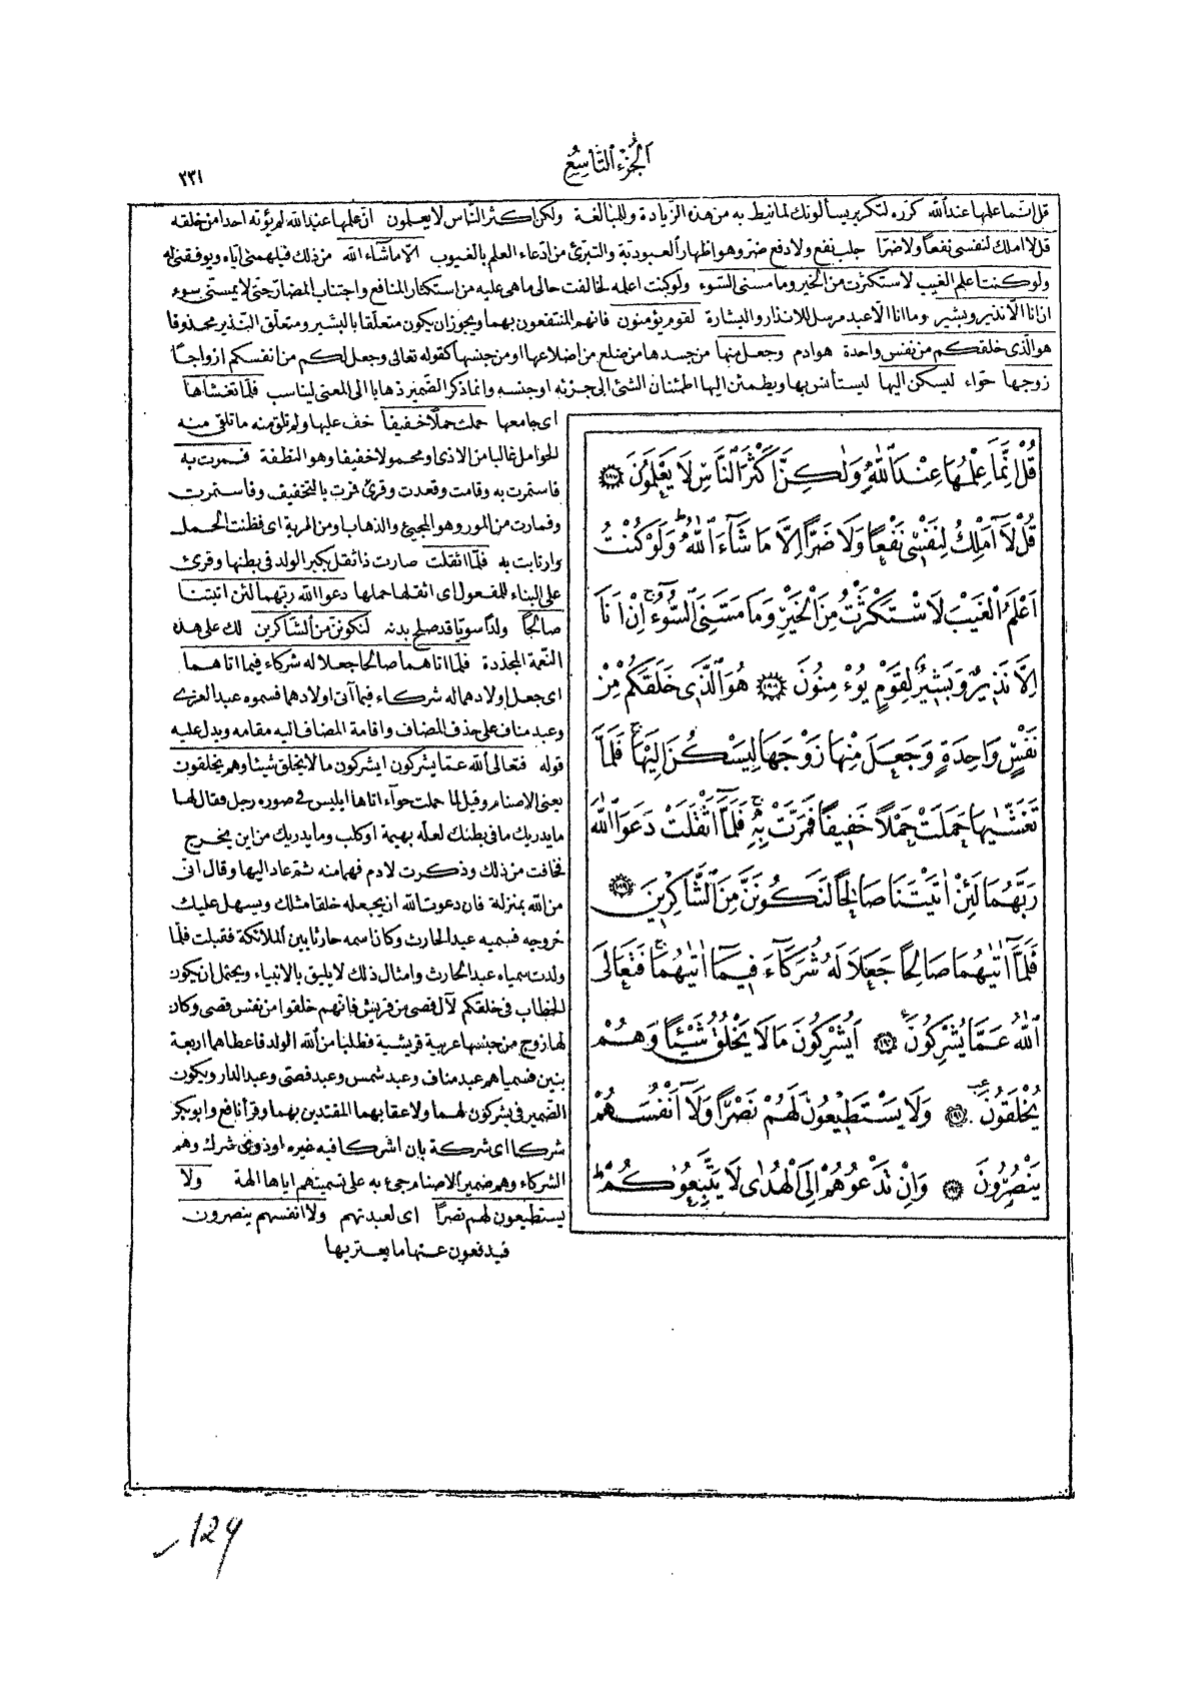 الجزء التاسع
٢٣١
قل انما علمها عند الله كرره لتكرير يسألونك لما نيط به من هذه الزيادة وللمبالغة ولكن اكثر الناس لا يعلمون ان علمها عند الله لم يؤته احدا من خلقه
قل لا املك لنفسى نفعاً ولا ضرّا جلب نفع ولا دفع ضر وهو اظهار العبودية والتبرئ من ادعاء العلم بالغيوب الا ما شاء الله من ذلك فيلهمنى اياه ويوفقنى له
ولو كنت اعلم الغيب لاستكثرت من الخير وما مسنى السوء ولو كنت اعلمه لخالفت حالى ما هى عليه من استكثار المنافع واجتناب المضار حتى لا يمسنى سوء
ان انا الا نذير وبشير وما انا الا عبد مرسل للانذار والبشارة لقوم يؤمنون فانهم المنتفعون بهما ويجوز ان يكون متعلقا بالبشير ومتعلق النذير محذوفا
هو الذى خلقكم من نفس واحدة هو ادم وجعل منها من جسدها من ضلع من اضلاعها او من جنسها كقوله تعالى وجعل لكم من انفسكم ازواجاً
زوجها حواء ليسكن اليها ليستأنس بها ويطمئن اليها اطمئنان الشئ الى جزئه او جنسه وانما ذكر الضمير ذهابا الى المعنى ليناسب فلما تغشاها
اى جامعها حملت حملا خفيفاً خف عليها ولم تلق منه ما تلقى منه
الحوامل غالبا من الاذى او محمولا خفيفا وهو النطفة فمرت به
فاستمرت به وقامت وقعدت وقرئ فمرت بالتخفيف وفاستمرت
وفمارت من المور وهو المجيئ والذهاب او من المرية اى فظنت الحمل
وارتابت به فلما اثقلت صارت ذا ثقل بكبر الولد فى بطنها وقرئ
على البناء للمفعول اى اثقلها حملها دعوا الله ربهما لئن اتيتنا
صالحاً ولدا سويا قد صلح بدنه لنكونن من الشاكرين لك على هذه
النعمة المجددة فلما اتاهما صالحا جعلا له شركاء فيما اتاهما
اى جعل اولادهما له شركاء فيما آتى اولادهما فسموه عبد العزى
وعبد مناف على حذف المضاف واقامة المضاف اليه مقامه ويدل عليه
قوله فتعالى الله عما يشركون ايشركون ما لا يخلق شيئا وهم يخلقون
يعنى الاصنام وقيل لما حملت حوآء اتاها ابليس فى صورة رجل فقال لها
ما يدريك ما فى بطنك لعله بهيمة او كلب وما يدريك من اين يخرج
فخافت من ذلك وذكرت لادم فهما منه ثم عاد اليها وقال انى
من الله بمنزلة فان دعوت الله ان يجعله خلقا مثلك ويسهل عليك
خروجه فسميه عبد الحارث وكان اسمه حارثا بين الملائكة فقبلت فلما
ولدت سمياه عبد الحارث وامثال ذلك لا يليق بالانبياء ويحتمل ان يكون
الخطاب فى خلقكم لآل قصى من قريش فانهم خلقوا من نفس قصى وكان
لها زوج من جنسها عربية قريشية فطلبا من الله الولد فاعطاهما اربعة
بنين فسمياهم عبد مناف وعبد شمس وعبد قصى وعبد الدار ويكون
الضمير فى يشركون لهما ولاعقابهما المقتدين بهما وقرأ نافع وابو بكر
شركا اى شركة بان اشركا فيه غيره او ذوى شرك وهم
الشركاء وهم ضمير الاصنام جئ به على تسميتهم اياها الهة ولا
يستطيعون لهم نصراً اى لعبدتهم ولا انفسهم ينصرون
فيدفعون عنها ما يعتريها
قُلْ اِنَّمَا عِلْمُهَا عِنْدَ اللّٰهِ وَلٰكِنَّ اَكْثَرَ النَّاسِ لَا يَعْلَمُونَ ﴿١٨٧﴾
قُلْ لَٓا اَمْلِكُ لِنَفْسٖى نَفْعًا وَلَا ضَرًّا اِلَّا مَا شَٓاءَ اللّٰهُ وَلَوْ كُنْتُ
اَعْلَمُ الْغَيْبَ لَاسْتَكْثَرْتُ مِنَ الْخَيْرِ وَمَا مَسَّنِىَ السُّٓوءُ اِنْ اَنَا
اِلَّا نَذٖيرٌ وَبَشٖيرٌ لِقَوْمٍ يُؤْمِنُونَ ﴿١٨٨﴾ هُوَ الَّذٖى خَلَقَكُمْ مِنْ
نَفْسٍ وَاحِدَةٍ وَجَعَلَ مِنْهَا زَوْجَهَا لِيَسْكُنَ اِلَيْهَا فَلَمَّا
تَغَشّٰيهَا حَمَلَتْ حَمْلًا خَفٖيفًا فَمَرَّتْ بِهٖ فَلَمَّٓا اَثْقَلَتْ دَعَوَا اللّٰهَ
رَبَّهُمَا لَئِنْ اٰتَيْتَنَا صَالِحًا لَنَكُونَنَّ مِنَ الشَّاكِرٖينَ ﴿١٨٩﴾
فَلَمَّٓا اٰتٰيهُمَا صَالِحًا جَعَلَا لَهُ شُرَكَٓاءَ فٖيمَٓا اٰتٰيهُمَا فَتَعَالَى
اللّٰهُ عَمَّا يُشْرِكُونَ ﴿١٩٠﴾ اَيُشْرِكُونَ مَا لَا يَخْلُقُ شَيْئًا وَهُمْ
يُخْلَقُونَ ﴿١٩١﴾ وَلَا يَسْتَطٖيعُونَ لَهُمْ نَصْرًا وَلَٓا اَنْفُسَهُمْ
يَنْصُرُونَ ﴿١٩٢﴾ وَاِنْ تَدْعُوهُمْ اِلَى الْهُدٰى لَا يَتَّبِعُوكُمْ
129